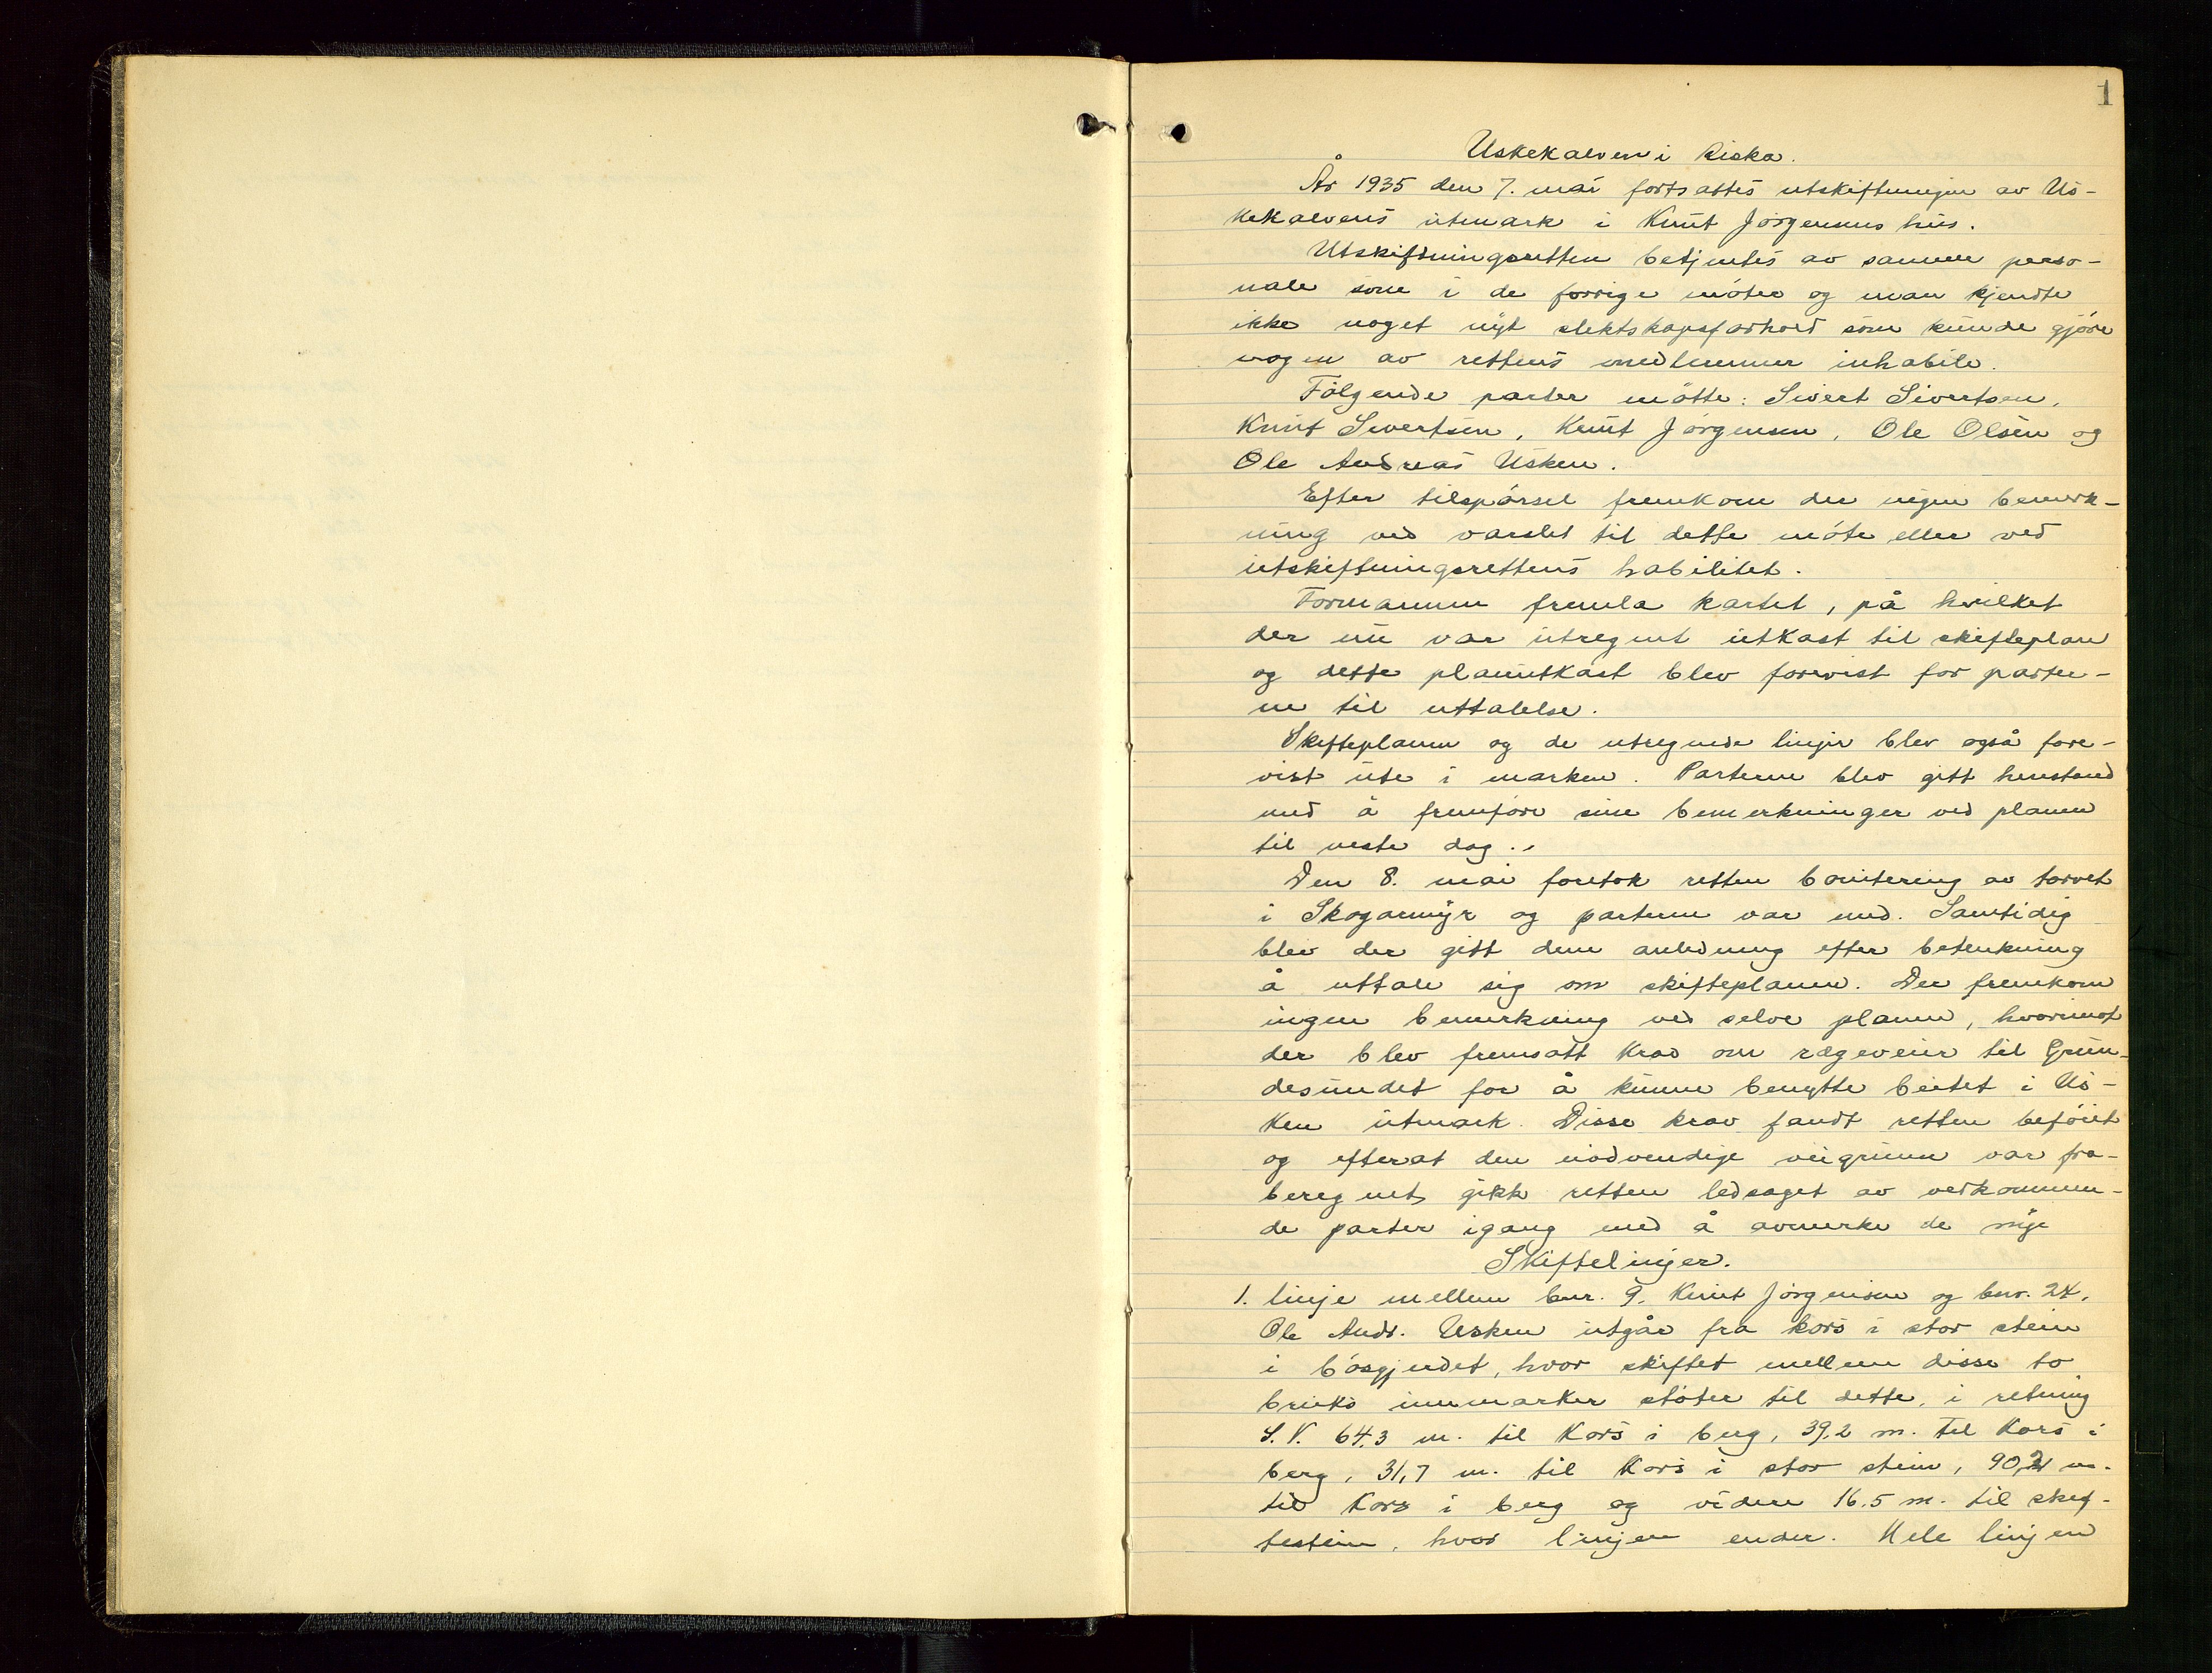 1
Uskekalven i Riska.
År 1935 den 7. mai fortsattes utskiftningen av Us-
kekalvens utmark i Knut Jørgensens hus.
Utskiftningsretten betjentes av samme perso-
nale som i de forrige møter og man kjendte
ikke noget nyt slektskapsforhold som kunde gjøre
nogen av rettens medlemmer inhabile.
Følgende parter møtte: Sivert Sivertsen,
Knut Sivertsen, Knut Jørgensen, Ole Olsen og
Ole Andreas Usken.
Efter tilspørsel fremkom der ingen bemerk-
ning ved varslet til dette møte eller ved
utskiftningsrettens habilitet.
Formannen fremla kartet, på hvilket
der nu var utregnet utkast til skifteplan
og dette planutkast blev forevist for parter-
ne til uttalelse.
Skifteplanen og de utregnede linjer blev også fore-
vist ute i marken. Partene blev gitt henstand
med å fremføre sine bemerkninger ved planen
til neste dag.
Den 8. mai foretok retten bonitering av torvet
i Skogamyr og partene var med. Samtidig
blev der gitt dem anledning efter betenkning
å uttale sig om skifteplanen. Der fremkom
ingen bemerkning ved selve planen, hvorimot
der blev fremsatt krav om rægeveier til Grun-
desundet for å kunne benytte beitet i Us-
ken utmark. Disse krav fandt retten beføiet
og efterat den nødvendige veigrunn var fra-
beregnet, gikk retten ledsaget av vedkommen-
de parter igang med å avmerke de nye
Skiftelinjer.
1. linje mellem bnr. 9, Knut Jørgensen og bnr. 24,
Ole Andr. Usken utgår fra kors i stor stein
i bøsgjerdet, hvor skiftet mellem disse to
bruks innmarker støter til dette, i retning
S.V. 64,3 m. til kors i berg, 39,2 m. til kors i
berg, 31,7 m. til kors i stor stein, 90,2 m.
til kors i berg og videre 16,5 m. til skif-
testein, hvor linjen ender. Hele linjen